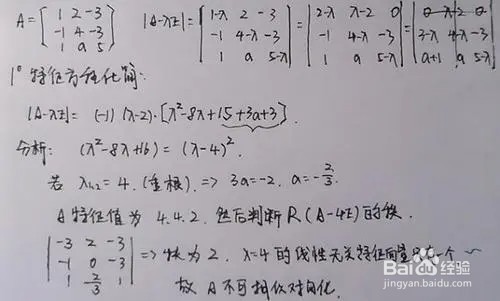 A = [1 2 -3; -1 4 -3; 1 a 5] |A-λE| = |1-λ 2 -3; -1 4-λ -3; 1 a 5-λ| = |2-λ λ-2 0; -1 4-λ -3; 1 a 5-λ| = |0 λ-2 0; 3-λ 4-λ -3; a+1 a 5-λ|
1° 特征方程化简:
|A-λE| = (-1)(λ-2)·[λ²-8λ+15+3a+3].
分析: (λ²-8λ+16) = (λ-4)².
若 λ₁,₂ = 4. (重根). => 3a=-2. a=-2/3.
A 特征值为 4.4.2. 然后判断 R(A-4E)的秩.
|-3 2 -3; -1 0 -3; 1 2/3 1| => 秩为 2. λ=4 的线性无关特征向量只有一个
故 A 不可相似对角化.
Bai 百科经验
jingyan.baidu.com